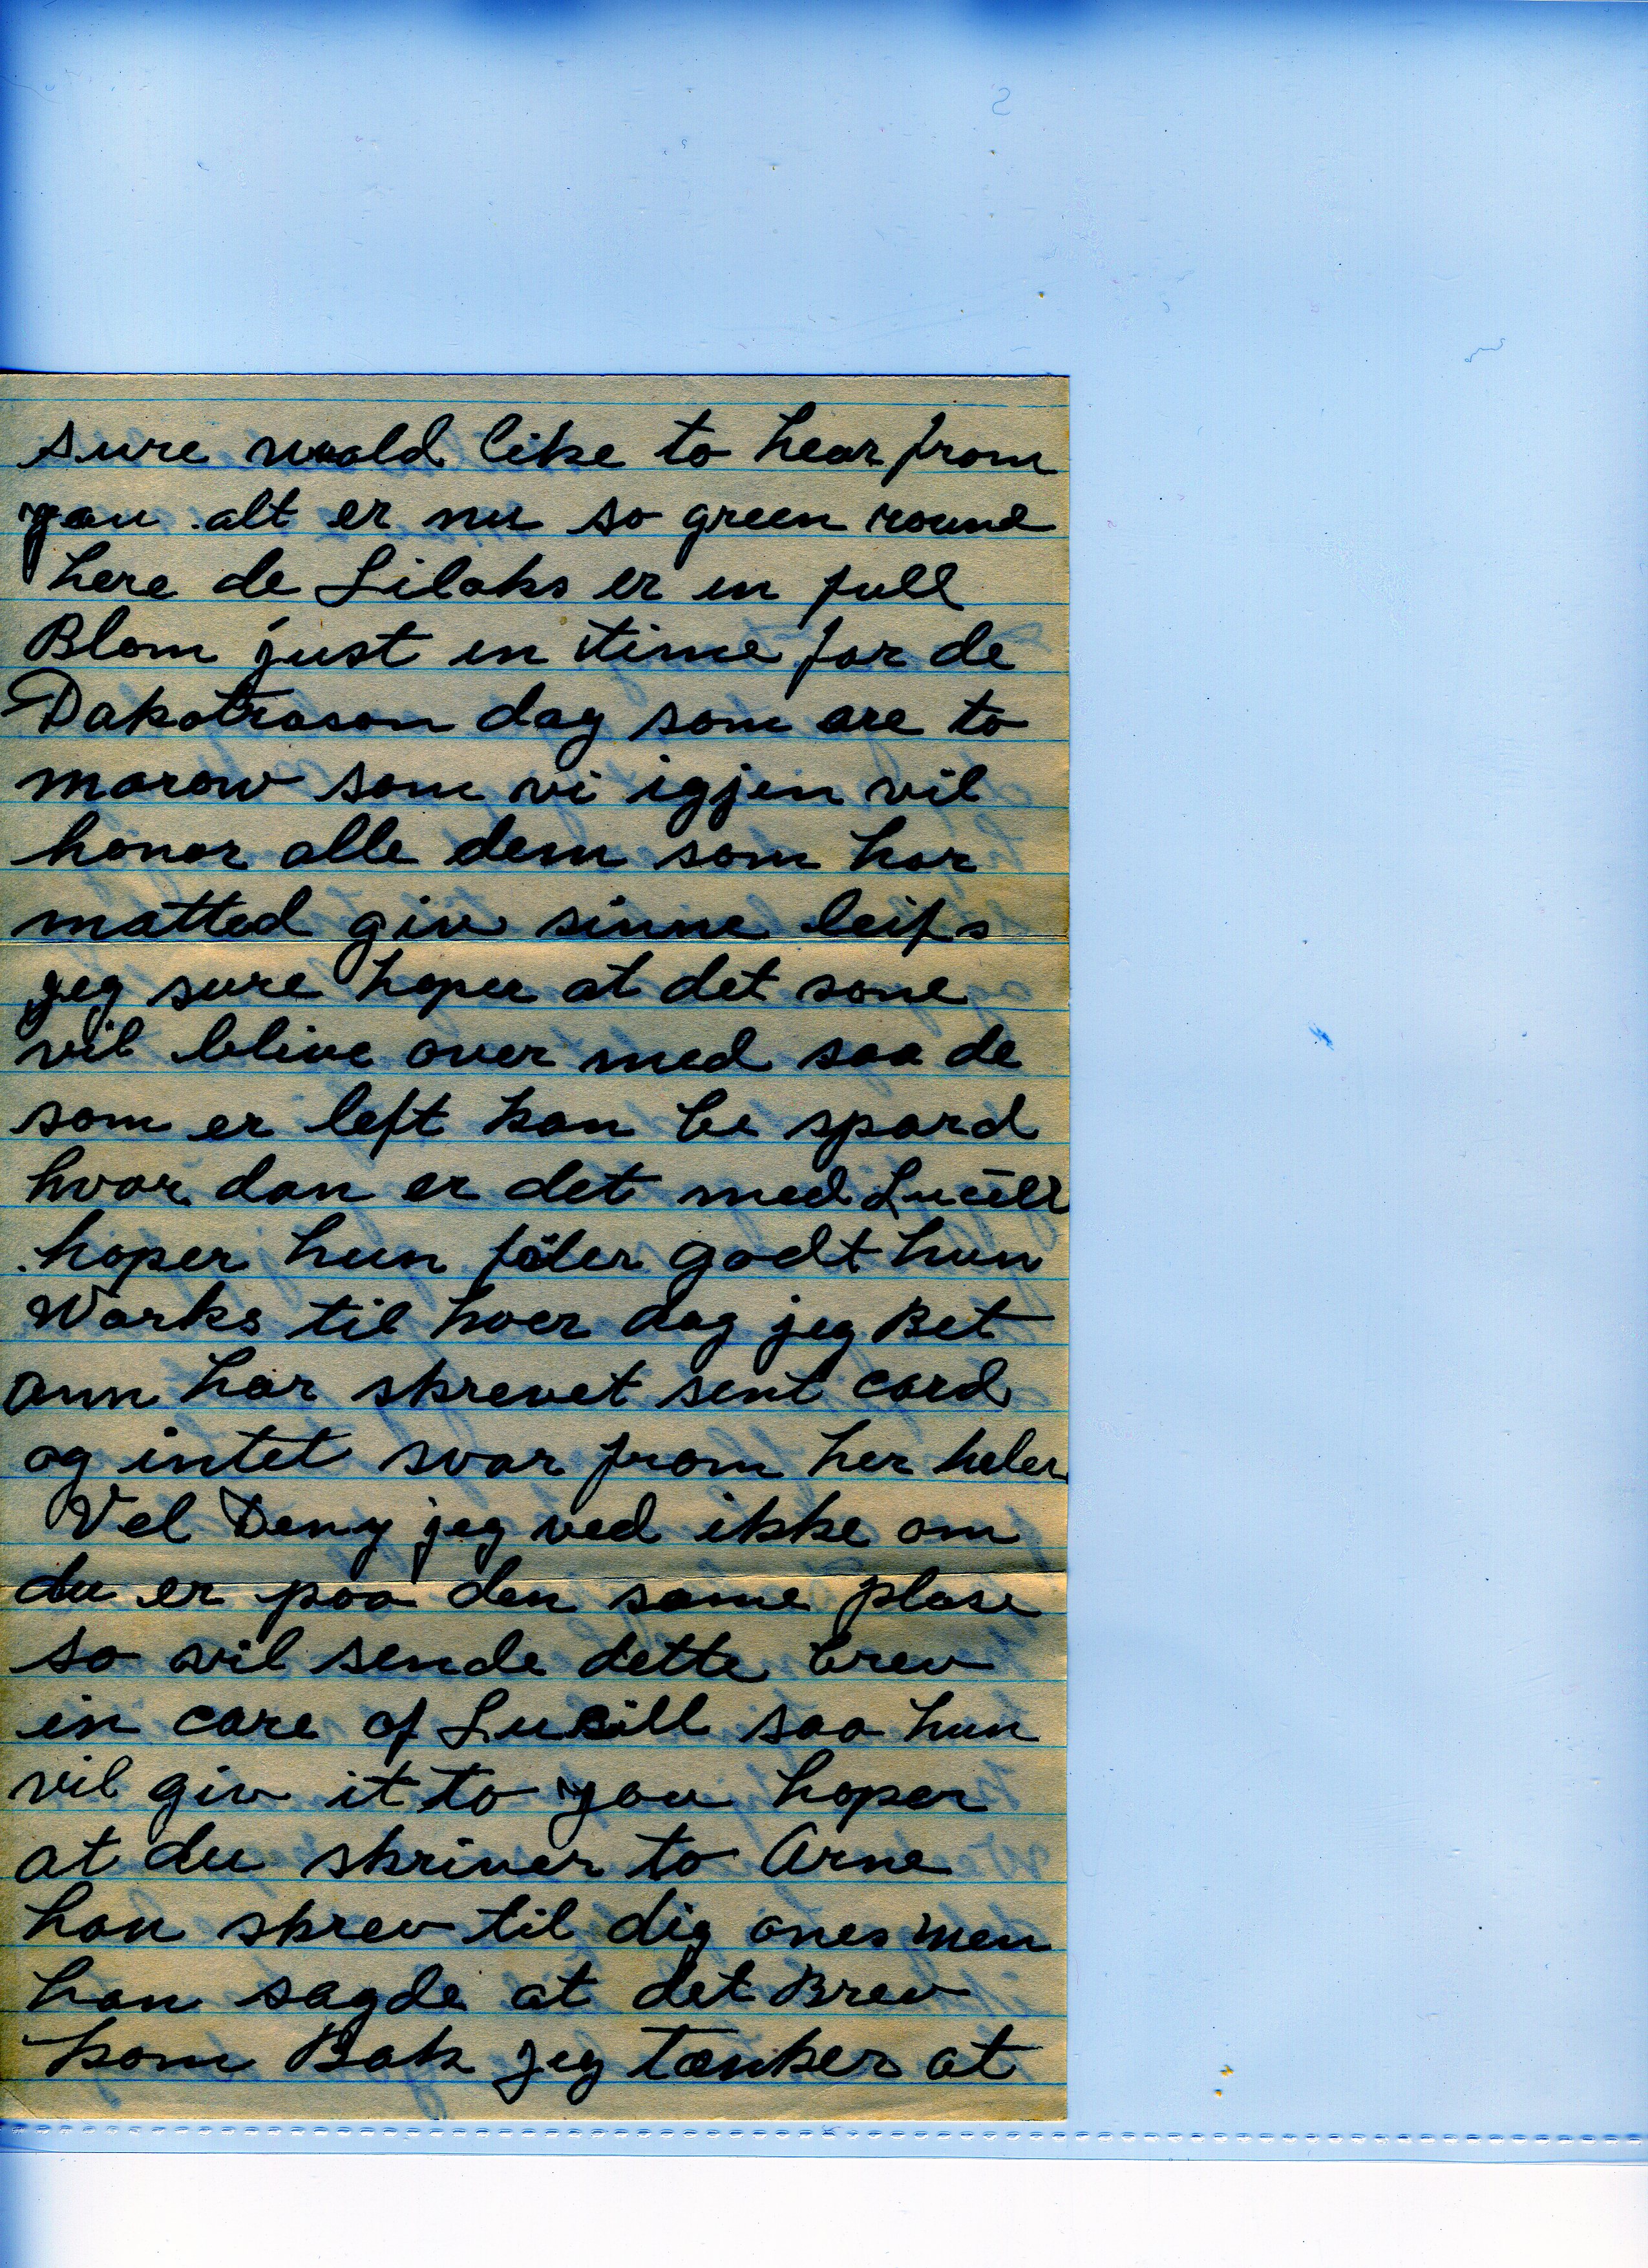 sure woald like to hear from
you alt er nu so green round
here de Lilaks er en full
Blom just en time for de
Dakotrason day som are to
morow som vi igjen vil
honor alle dem som har
matted giv sinne leifs
jeg sure hoper at det sone
vil blive over med saa de
som er left kan be spard
hvor dan er det med Lucill
hoper hun föler godt hun
Works til hver dag jeg Bet
ann har skrevet sent card
og intet svar from her heler
Vel Deny jeg ved ikke om
du er paa den same plase
so vil sende dette brev
in care of Lusill saa hun
vil giv it to you hoper
at du skriver to Arne
han skrev til dig ones men
han sagde at det Brev
kom Bak jeg tænker at